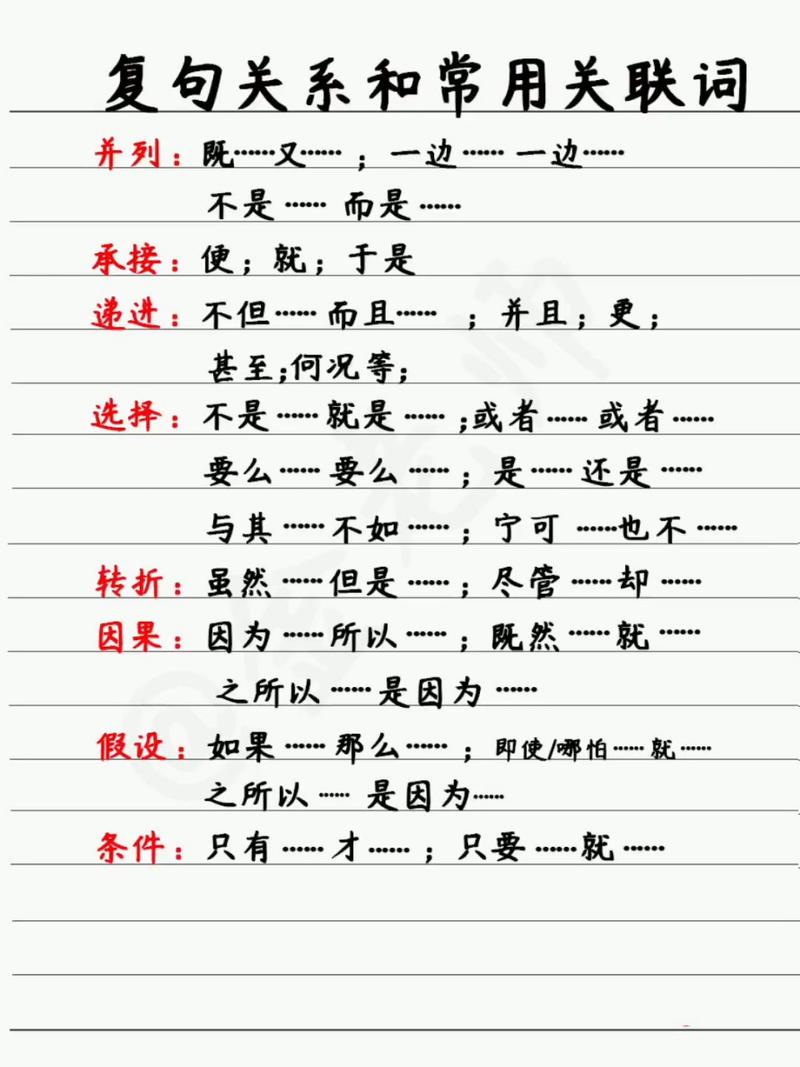 复句关系和常用关联词
并列：既……又……；一边……一边……
不是……而是……
承接：便；就；于是
递进：不但……而且……；并且；更；
甚至；何况等；
选择：不是……就是……；或者……或者……
要么……要么……；是……还是……
与其……不如……；宁可……也不……
转折：虽然……但是……；尽管……却……
因果：因为……所以……；既然……就……
之所以……是因为……
假设：如果……那么……；即使/哪怕……就……
之所以……是因为……
条件：只有……才……；只要……就……
@金老师